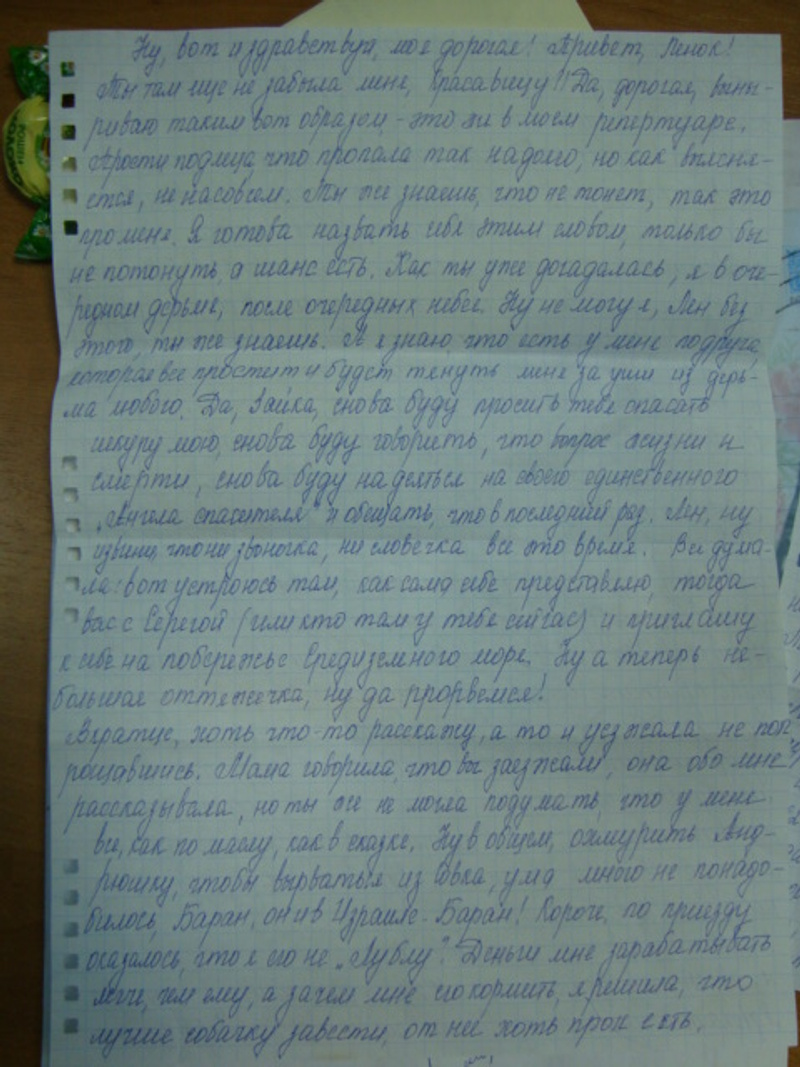 Ну, вот и здравствуй, моя дорогая! Привет, Ленок!
Ты там еще не забыла меня, красавицу!! Да, дорогая, выны-
риваю таким вот образом - это же в моем репертуаре.
Прости подлеца, что пропала так надолго, но как выясня-
ется, не насовсем. Ты же знаешь, что не тонет, так это
про меня. Я готова назвать себя этим словом, только бы
не потонуть, а шанс есть. Как ты уже догадалась, я в оче-
редном дерьме, после очередных небес. Ну не могу я, Лен без
этого, ты же знаешь. А я знаю, что есть у меня подруга,
которая все простит и будет тянуть меня за уши из дерь-
ма любого. Да, Зайка, снова буду просить тебя спасать
шкуру мою, снова буду говорить, что вопрос жизни и
смерти, снова буду надеяться на своего единственного
"Ангела спасителя" и обещать, что в последний раз. Лен, ну
извини, что ни звоночка, ни словечка все это время. Все дума-
ла: вот устроюсь там, как сама себе представляю, тогда
вас с Серегой (или кто там у тебя сейчас) и приглашу
к себе на побережье Средиземного моря. Ну а теперь не-
большая оттяжечка, ну да прорвемся!
Вкратце, хоть что-то расскажу, а то и уезжала не поп
рощавшись. Мама говорила, что вы заезжали, она обо мне
рассказывала, но ты же не могла подумать, что у меня
все, как по маслу, как в сказке. Ну в общем, охмурить Анд-
рюшку, чтобы вырваться из совка, ума много не понадо-
билось, Баран, он и в Израиле - Баран! Короче, по приезду
оказалось, что я его не "Лублу". Деньги мне зарабатывать
легче, чем ему, а зачем мне его кормить, я решила, что
лучше собачку завести, от нее хоть прок есть.
РОШЕН